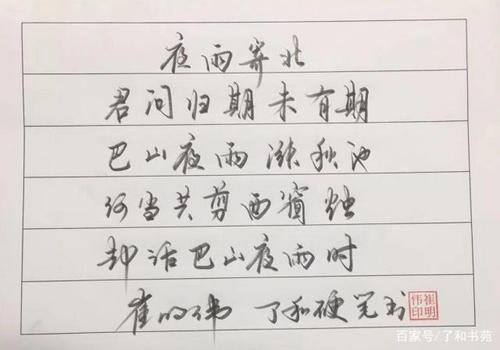 夜雨寄北
君问归期未有期
巴山夜雨涨秋池
何当共剪西窗烛
却话巴山夜雨时
崔明伟 了和硬笔书
崔明伟印
百家号/了和书苑